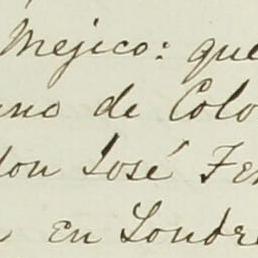 Mejico: que
no de Colo
don José Fer
en Londre